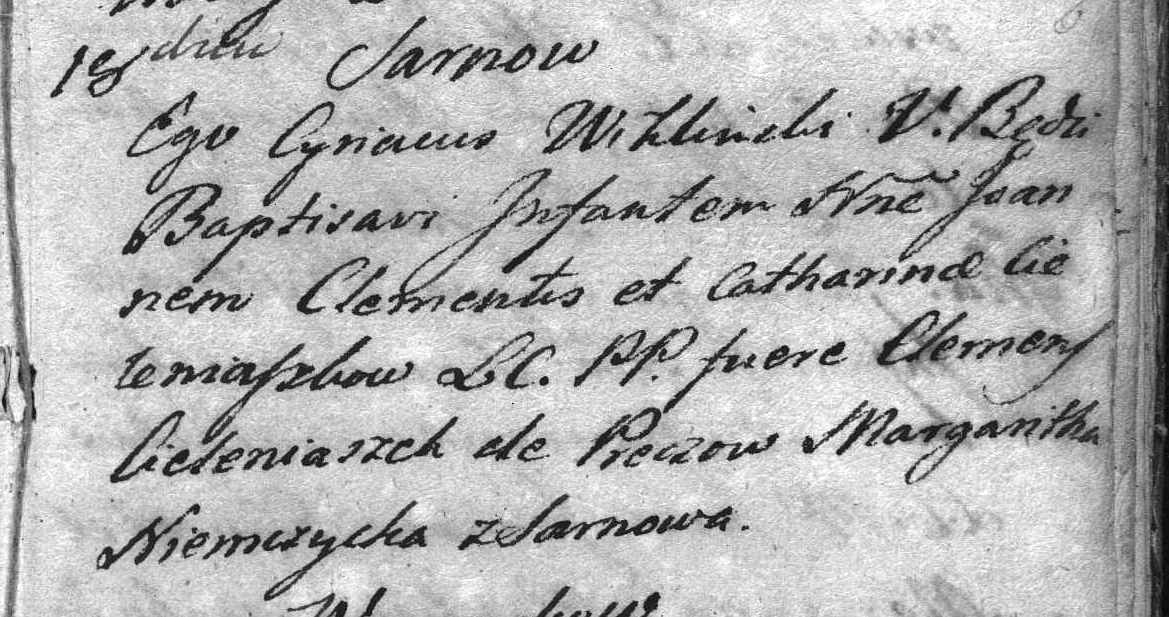 18 dieu Sarnow
Ego Cyriacus Wiklinski V. Będzi
Baptisavi Infantem Nñe Joan
nem Clementis et Catharinæ Cie
leniaszkow LC. PP. fuere Clemens
Cieleniaszek de Preczow Margaritha
Niemczycka z Sarnowa.